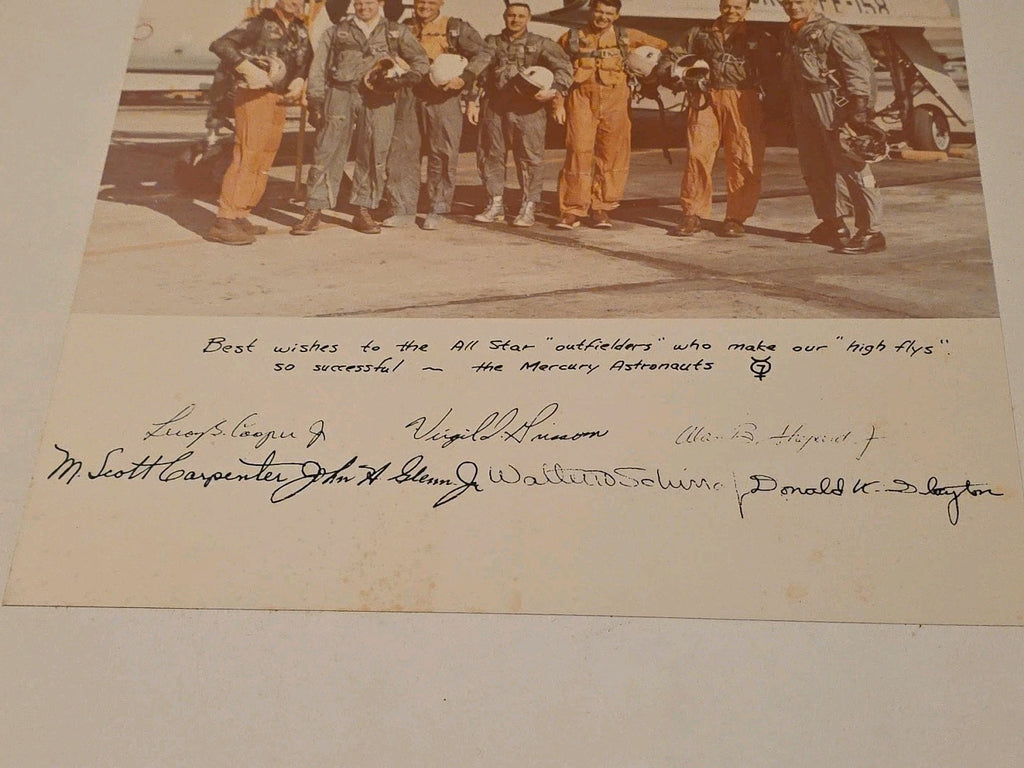 Best wishes to the All Star "outfielders" who make our "high flys"
so successful ~ the Mercury Astronauts
Leroy G. Cooper Jr Virgil I. Grissom Alan B. Shepard Jr
M. Scott Carpenter John H Glenn Jr Walter M Schirra Jr Donald K. Slayton